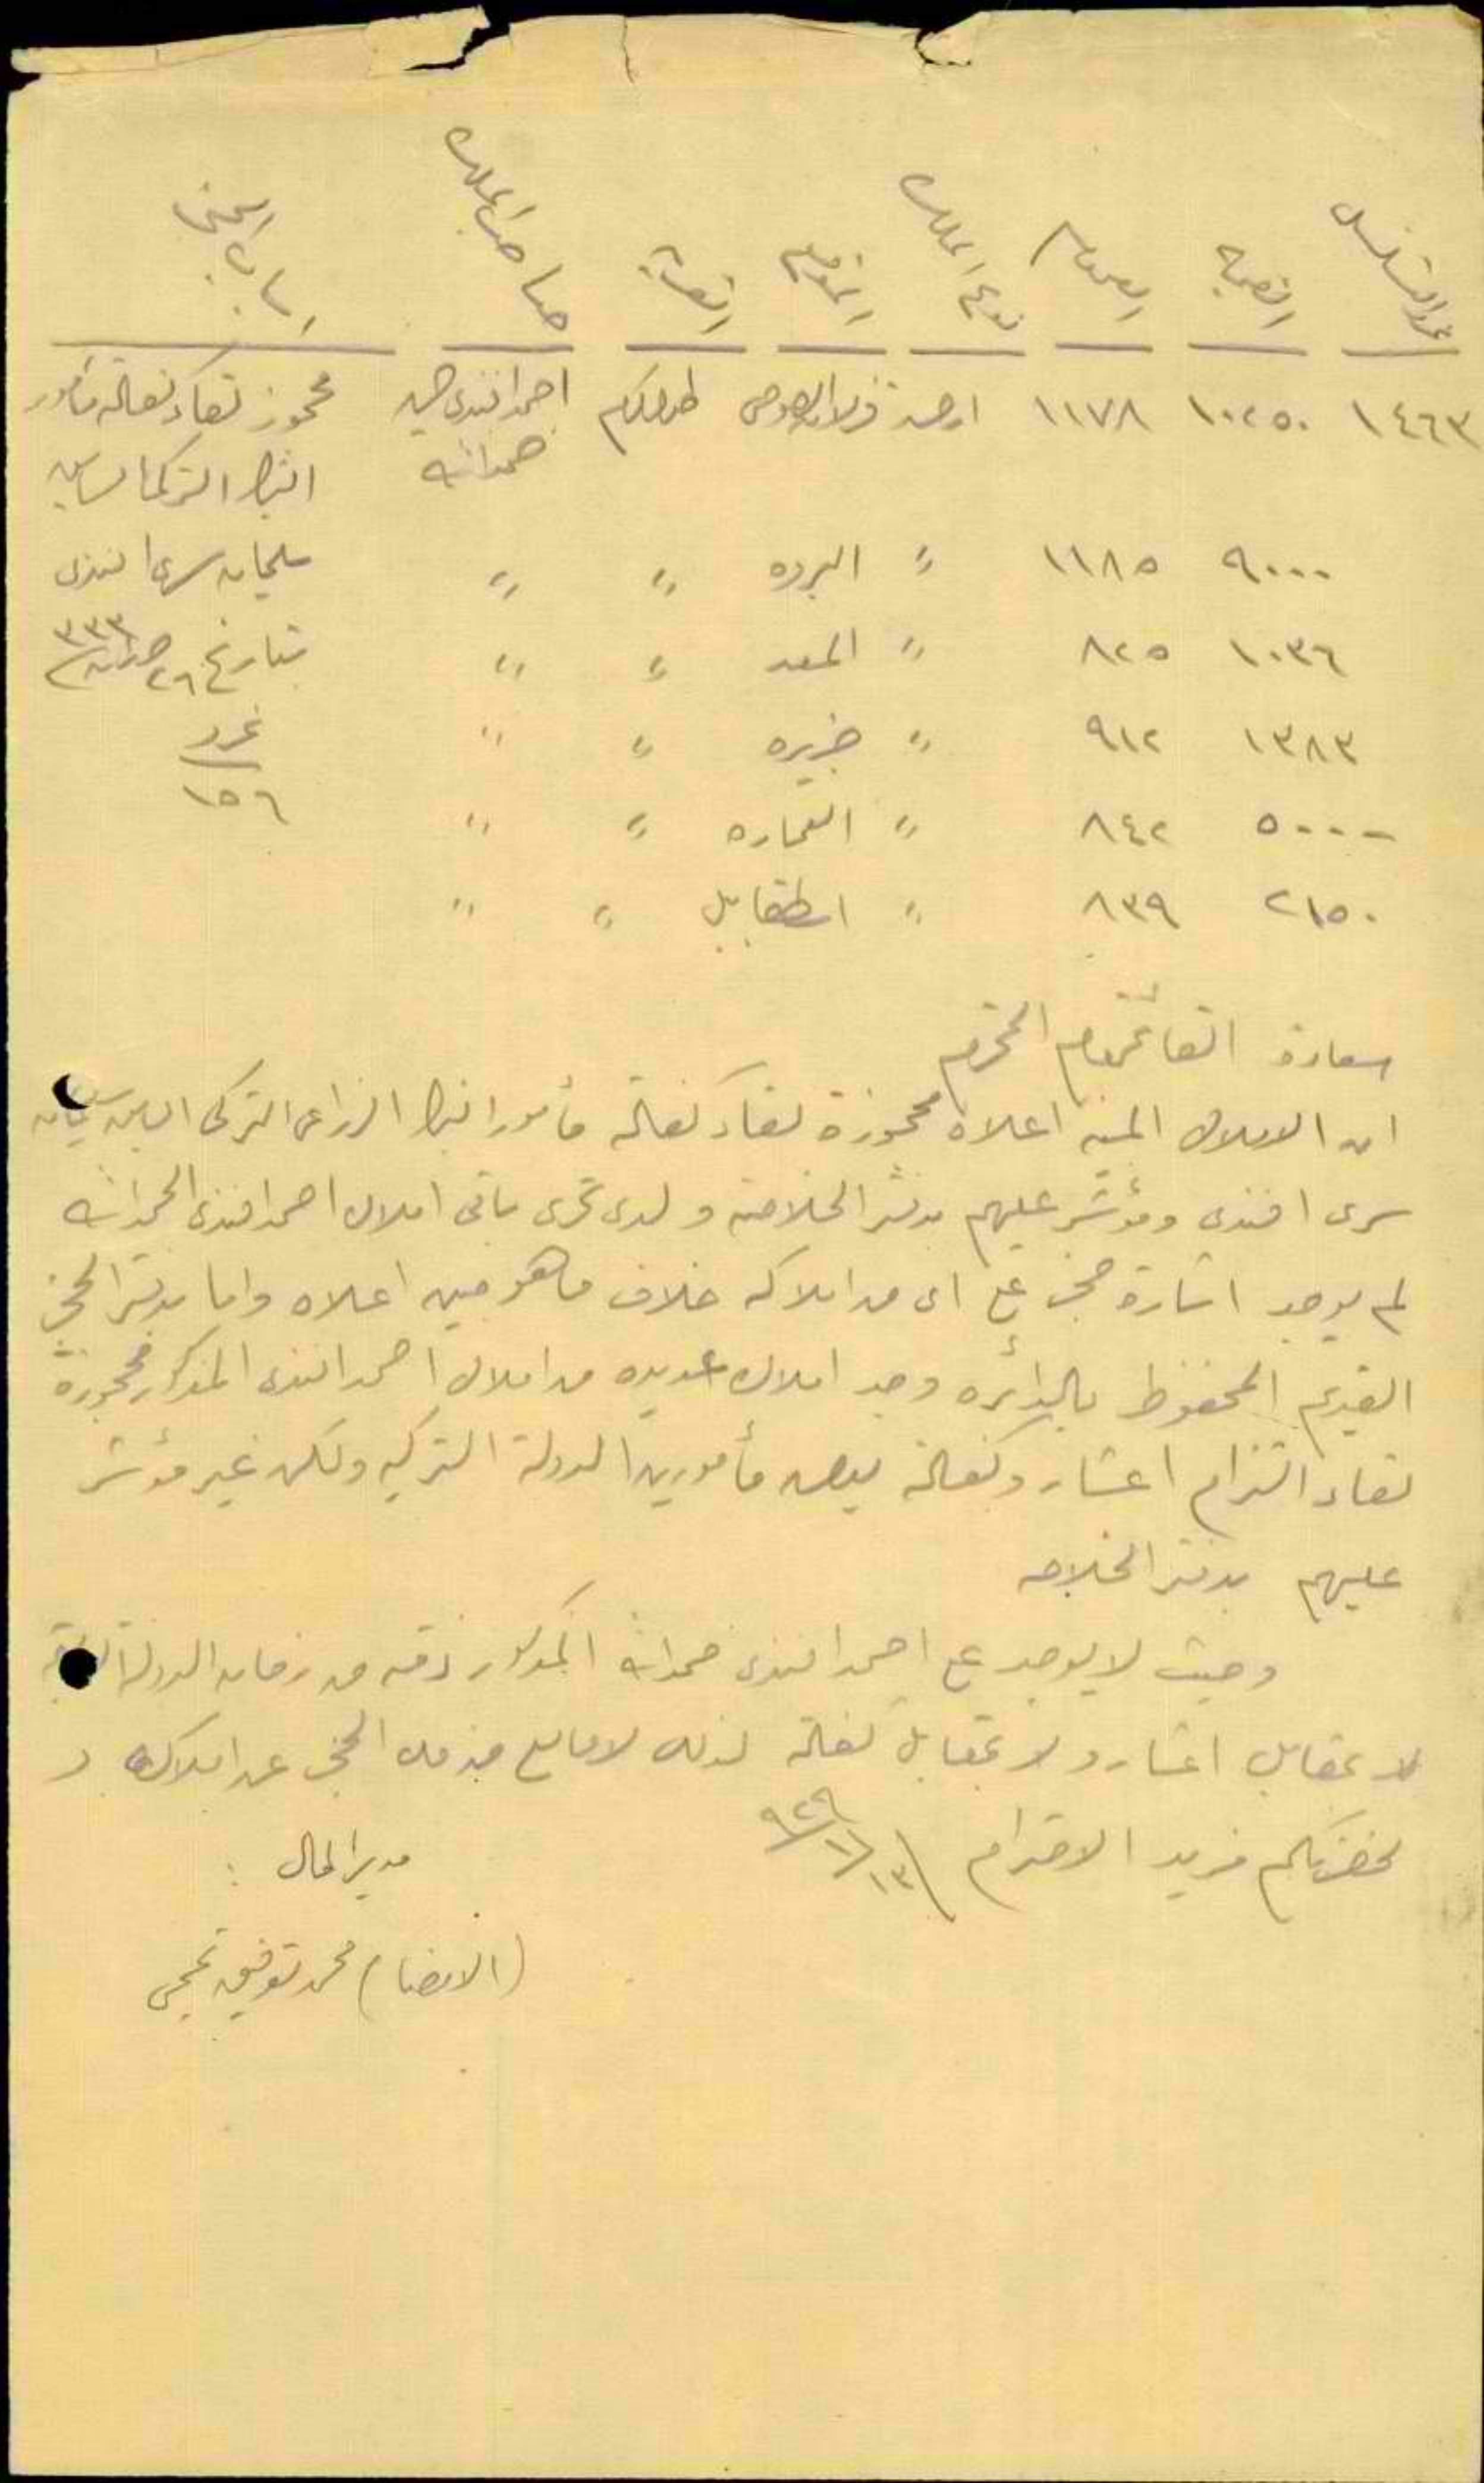 نمرة التسلسل القيمة العموم نوع الملك الموقع القضاء صاحب الملك اسباب الحجز
١٤٦٣ ١٠٢٥٠ ١١٧٨ ارض طولكرم احمد افندي محجوز لقاء كفالة مأمور
حمدالله البنك التركي السابق
٩٠٠٠ ١١٨٥ " البروه " " سليمان سري افندي
١٠٣٦ ٨٢٥ " " " بتاريخ ٢٦ ٣٣٣
١٣٨٣ ٩١٢ " جزيره " " نمرو
٥٠٠٠ ٨٤٢ " العماره " " ١٥٦
٢١٥٠ ٨٣٩ " " "
سعادة القائمقام المحترم
ان الاملاك المبينه اعلاه محجوزة لقاء كفالة مأمور البنك الزراعي التركي السابق سليمان
سري افندي ومؤشر عليهم بدفتر الخلاصة ولدى تحري باقي املاك احمد افندي الحمدالله
لم يوجد اشارة حجز على اي من املاكه خلاف ما هو مبين اعلاه واما بدفتر الحجز
القديم المحفوظ بالدائره وجد املاك عديده من املاك احمد افندي المذكور محجوزة
لقاء التزام اعشار وكفالة بعض مأمورين الدولة التركيه ولكن غير مؤشر
عليهم بدفتر الخلاصه
وحيث لا يوجد على احمد افندي حمدالله المذكور ذمه من زمان الدولة
لا بمقابل اعشار ولا بمقابل كفالة لذلك لا مانع من فك الحجز عن املاكه و
لحضرتكم مزيد الاحترام ١٣/١/٩٢٩
مدير المال :
(الامضا) محمد توفيق